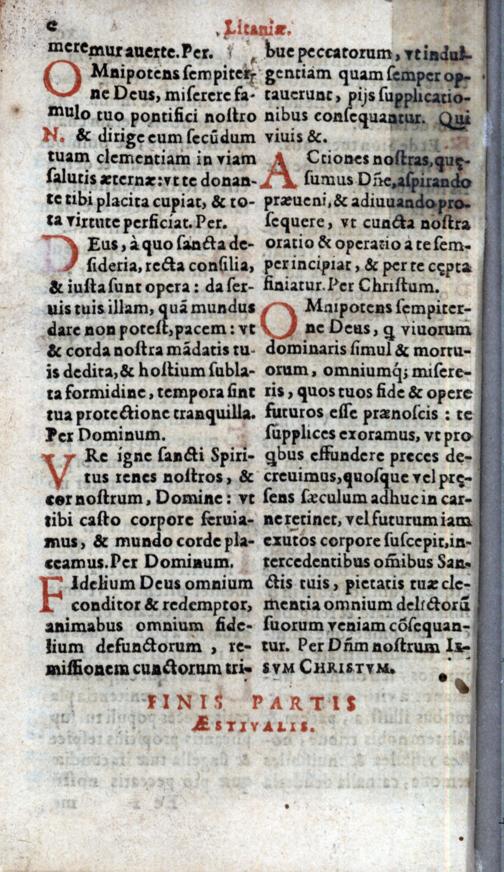 Litaniæ.
meremur auerte. Per.
OMnipotens sempiter-
ne Deus, miserere fa-
mulo tuo pontifici nostro
N. & dirige eum secũdum
tuam clementiam in viam
salutis æternæ: vt te donan-
te tibi placita cupiat, & to-
ta virtute perficiat. Per.
DEus, à quo sancta de-
sideria, recta consilia,
& iusta sunt opera: da ser-
uis tuis illam, quã mundus
dare non potest, pacem: vt
& corda nostra mãdatis tu-
is dedita, & hostium subla-
ta formidine, tempora sint
tua protectione tranquilla.
Per Dominum.
VRe igne sancti Spiri-
tus renes nostros, &
cor nostrum, Domine: vt
tibi casto corpore seruia-
mus, & mundo corde pla-
ceamus. Per Dominum.
FIdelium Deus omnium
conditor & redemptor,
animabus omnium fide-
lium defunctorum, re-
missionem cunctorum tri-
bue peccatorum, vt indul-
gentiam quam semper op-
tauerunt, pijs supplicatio-
nibus consequantur. Qui
viuis &.
ACtiones nostras, quę-
sumus Dñe, aspirando
præueni, & adiuuando pro-
sequere, vt cuncta nostra
oratio & operatio à te sem-
per incipiat, & per te cępta
finiatur. Per Christum.
OMnipotens sempiter-
ne Deus, q viuorum
dominaris simul & mortu-
orum, omniumq; misere-
ris, quos tuos fide & opere
futuros esse prænoscis: te
supplices exoramus, vt pro
qbus effundere preces de-
creuimus, quosque vel prę-
sens sæculum adhuc in car-
ne retinet, vel futurum iam
exutos corpore suscepit, in-
tercedentibus om̃ibus San-
ctis tuis, pietatis tuæ cle-
mentia omnium delictorũ
suorum veniam cõsequan-
tur. Per Dñm nostrum IE-
SVM CHRISTVM.
FINIS PARTIS
ÆSTIVALIS.